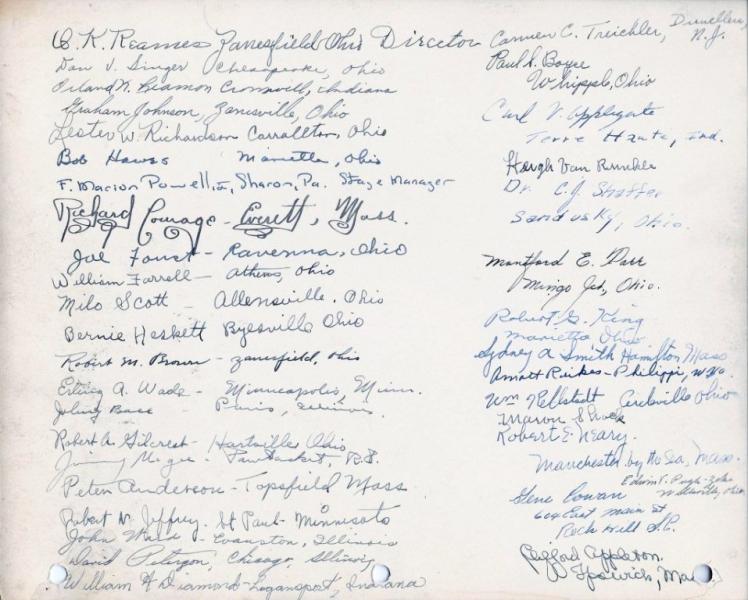 C. K. Reames Zanesfield Ohio Director
Dan V. Singer Chesapeake, Ohio
Orland K. Leamon Indiana
Graham Johnson, Zanesville, Ohio
Lester W. Richardson Carrollton, Ohio
Bob Hawss Marietta, Ohio
F. Marion Powell Jr, Sharon, Pa. Stage Manager
Richard Courage - Everett, Mass.
Joe Foust - Ravenna, Ohio
William Farrell - Athens, Ohio
Milo Scott - Allensville, Ohio
Bernie Heskett Byesville Ohio
Robert M. Brown - Zanesfield, Ohio
Erling A. Wade - Minneapolis, Minn.
Johnny Bass Paris, Illinois.
Robert A. Gilcrest - Hartville Ohio
Jimmy Magee - Pawtucket, R.I.
Peter Anderson - Topsfield Mass
Robert N. Jeffrey. St Paul - Minnesota
John - Evanston, Illinois
David Peterson, Chicago, Illinois
William A Diamond - Logansport, Indiana
Carmen C. Treichler, Dunellen,
N.J.
Paul A. Boyce
Whipple, Ohio
Carl V. Applegate
Terre Haute, Ind.
Hough Van Runkle
Dr. C. J. Shaffer
Sandusky, Ohio.
Montford E. Darr
Mingo Jct, Ohio.
Robert G. King
Marietta Ohio.
Sydney A Smith Hamilton Mass
Philippi, W.Va.
Wm Kellstadt Circleville Ohio
Marvin Shock
Robert E. Neary.
Manchester by the Sea, Mass.
Edwin T. Pugh
Ohio
Gene Cowan
604 East Main St
Rock Hill S.C.
Clifford Appleton.
Ipswich, Mass